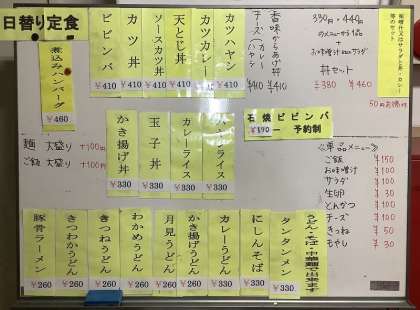 日替り定食
煮込みハンバーグ
¥460
ビビンバ
¥410
カツ丼
¥410
ソースカツ丼
¥410
天とじ丼
¥410
カツカレー
¥410
カツハヤシ
¥410
チーズ(カレー
¥410
香味からあげ丼
¥410
330円・440円
のメニューから1品
+
お味噌汁orサラダ
丼セット
¥380 ¥460
味噌汁又はサラダと丼・カレー
等のセット
麺 大盛り +100円
ご飯 大盛り +100円
かき揚げ丼
¥330
玉子丼
¥330
カレーライス
¥330
¥330
石焼ビビンバ
¥590
予約制
<単品メニュー>
ご飯 ¥150
お味噌汁 ¥100
サラダ ¥100
生卵 ¥30
とんかつ ¥100
チーズ ¥100
きつね ¥50
もやし ¥30
豚骨ラーメン
¥260
きつわかうどん
¥260
きつねうどん
¥260
わかめうどん
¥260
月見うどん
¥260
かき揚げうどん
¥260
カレーうどん
¥330
にしんそば
¥330
タンタンメン
¥330
うどん・そば・中華麺で出来ます